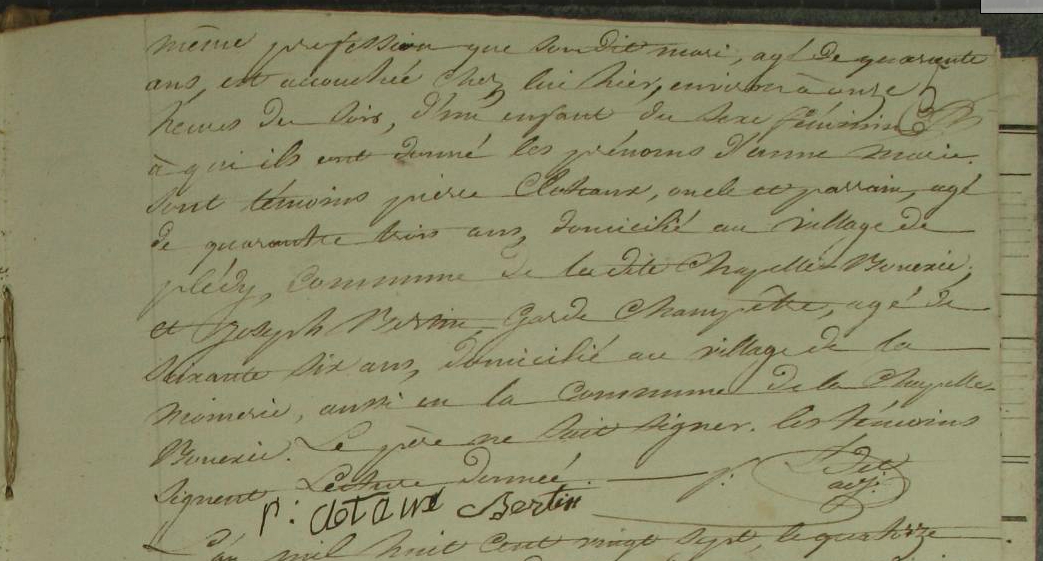 même profession que son dit mari, agé de quarante
ans, est accouchée chez lui hier, environ à onze
heures du soir, d'un enfant du sexe féminin
à qui ils ont donné les prénoms d'anne marie.
Sont témoins pierre Clotaux, oncle et parrain, agé
de quarante trois ans, domicilié au village de
plédy, Commune de la dite Chapelle-Bouexic;
et Joseph Bertin, Garde Champêtre, agé de
Soixante six ans, domicilié au village de la
, aussi en la Commune de la Chapelle-
Bouexic. Le père ne sait signer. les témoins
signent. Lecture donnée.
p: clotaux Bertin
L'an mil huit cent vingt sept, le quatorze